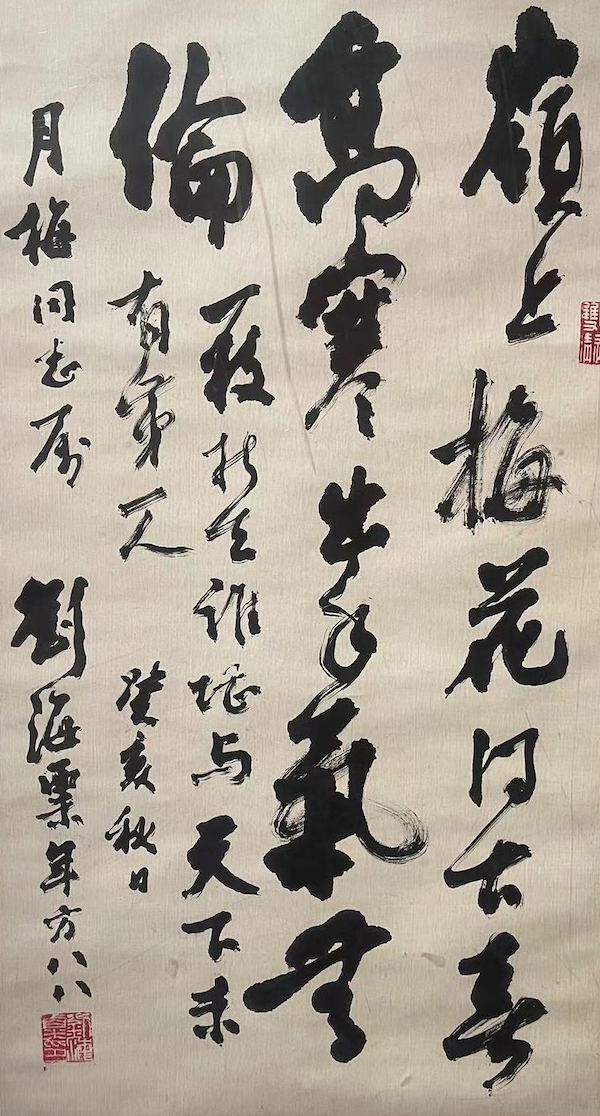 嶺上梅花古春
高寒氣無
倫
一枝誰堪与天下未
有第人
癸亥秋日
月梅同志属
劉海粟年方八八